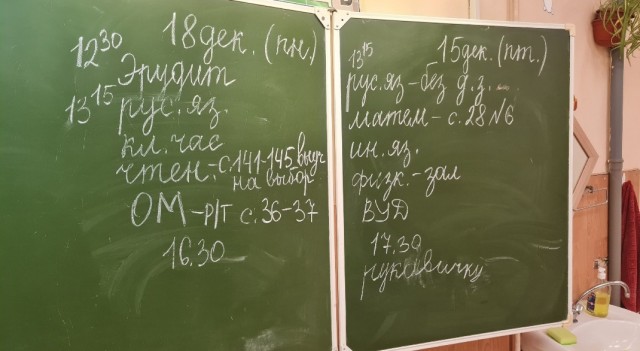 18 дек. (пн.)
12 30
Эрудит
13 15 рус. яз.
кл. час
чтен. - с. 141-145 выуч
на выбор
ОМ - р/т с. 36-37
16.30
15 дек. (пт.)
13 15
рус. яз - без д. з.
матем - с. 28 №6
ин. яз.
физк. - зал
ВУД
17.30
рукавички